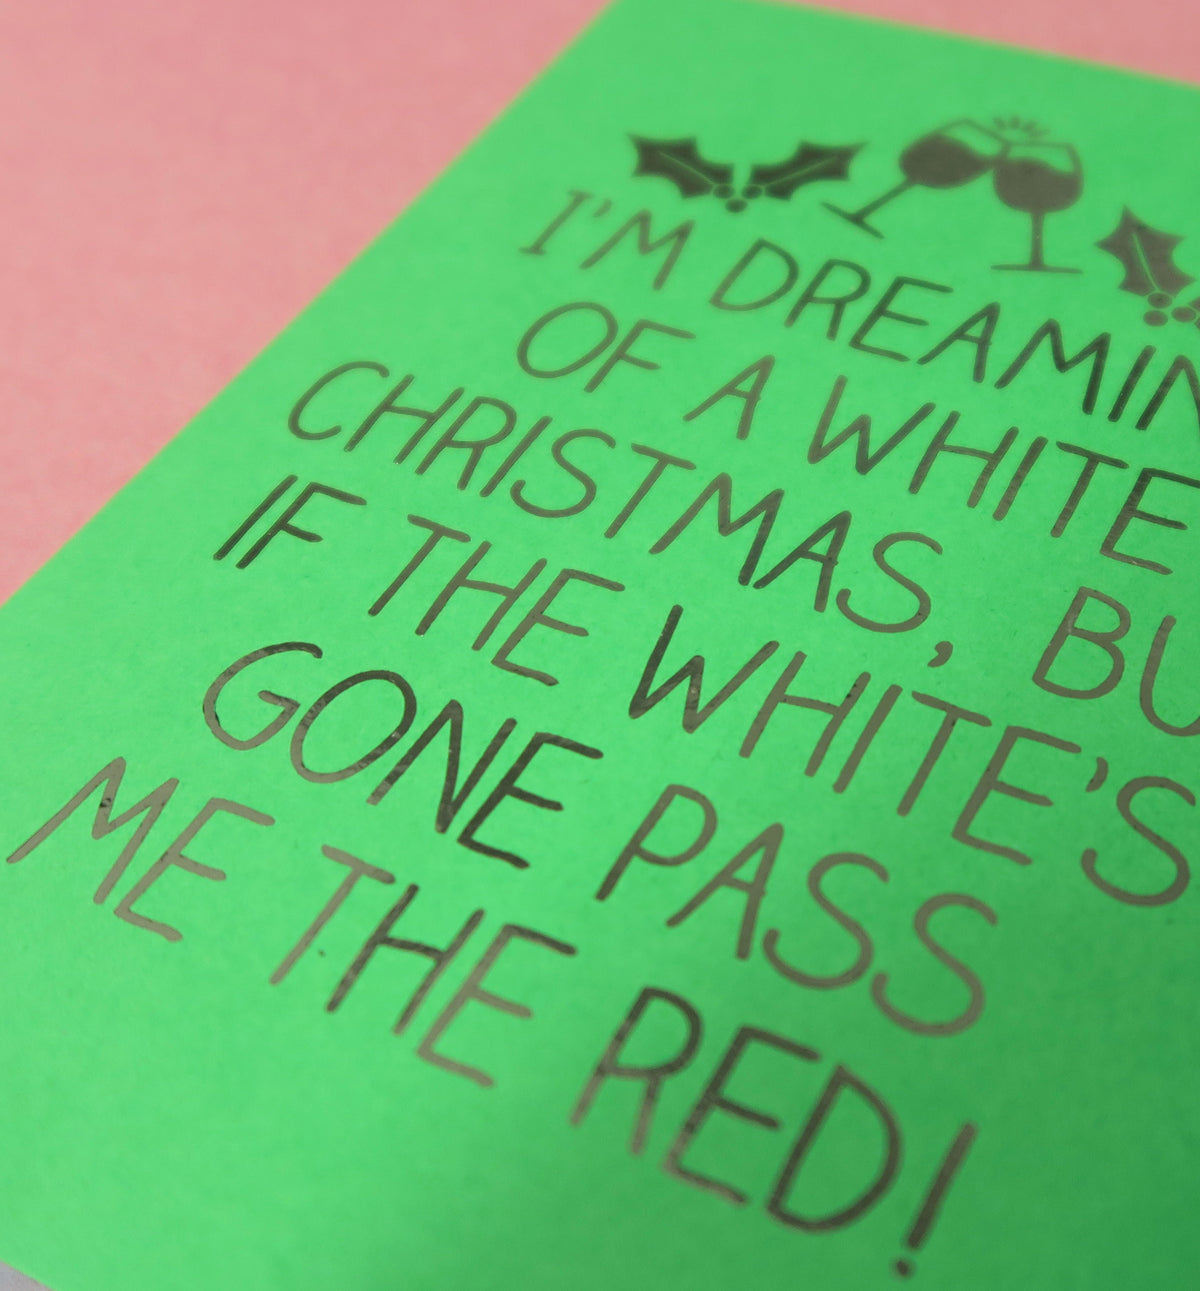 I'M DREAMIN
OF A WHITE
CHRISTMAS, BU
IF THE WHITE'S
GONE PASS
ME THE RED!